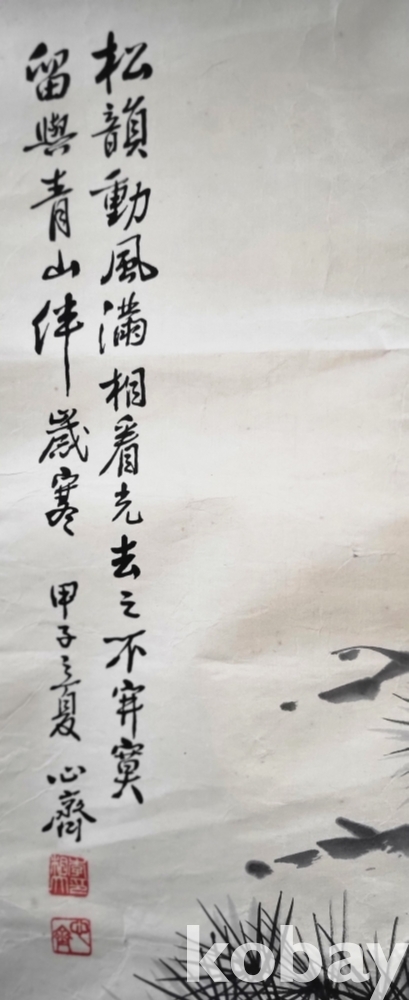 松韻動風滿相看先去之不穽寞
留與青山伴歲寒 甲子之夏 心齋
心齋
kobay